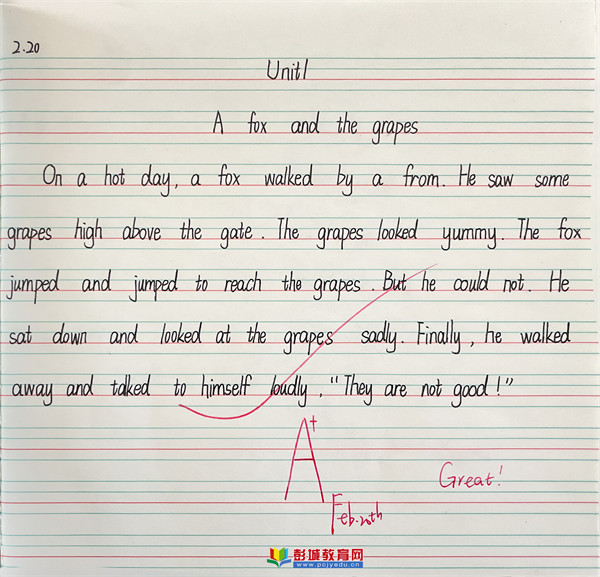 2.20
Unit1
A fox and the grapes
On a hot day, a fox walked by a from. He saw some
grapes high above the gate. The grapes looked yummy. The fox
jumped and jumped to reach the grapes. But he could not. He
sat down and looked at the grapes sadly. Finally, he walked
away and talked to himself loudly, "They are not good!"
A+
Great!
Feb.20th
彭城教育网
www.pcjyedu.cn